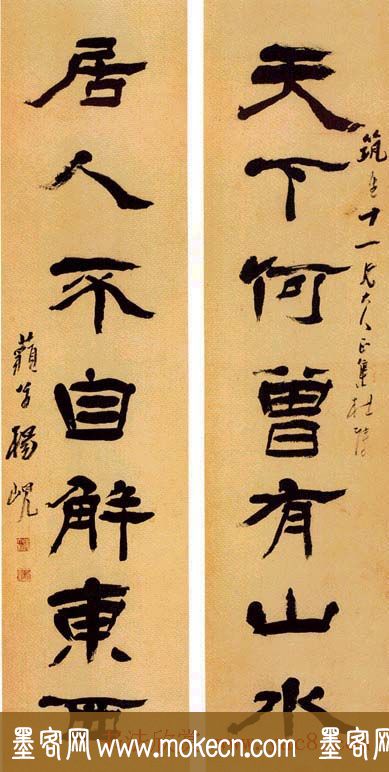 天下何曾有山水
十一兄大人正集杜陵
居人不自解東西
楊峴
墨客网 www.mokecn.com 墨客网